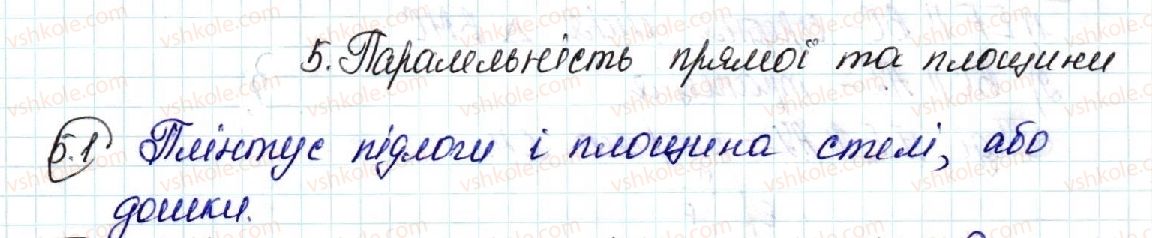 5. Паралельність прямої та площини
5.1 Плінтус підлоги і площина стелі, або
дошки.